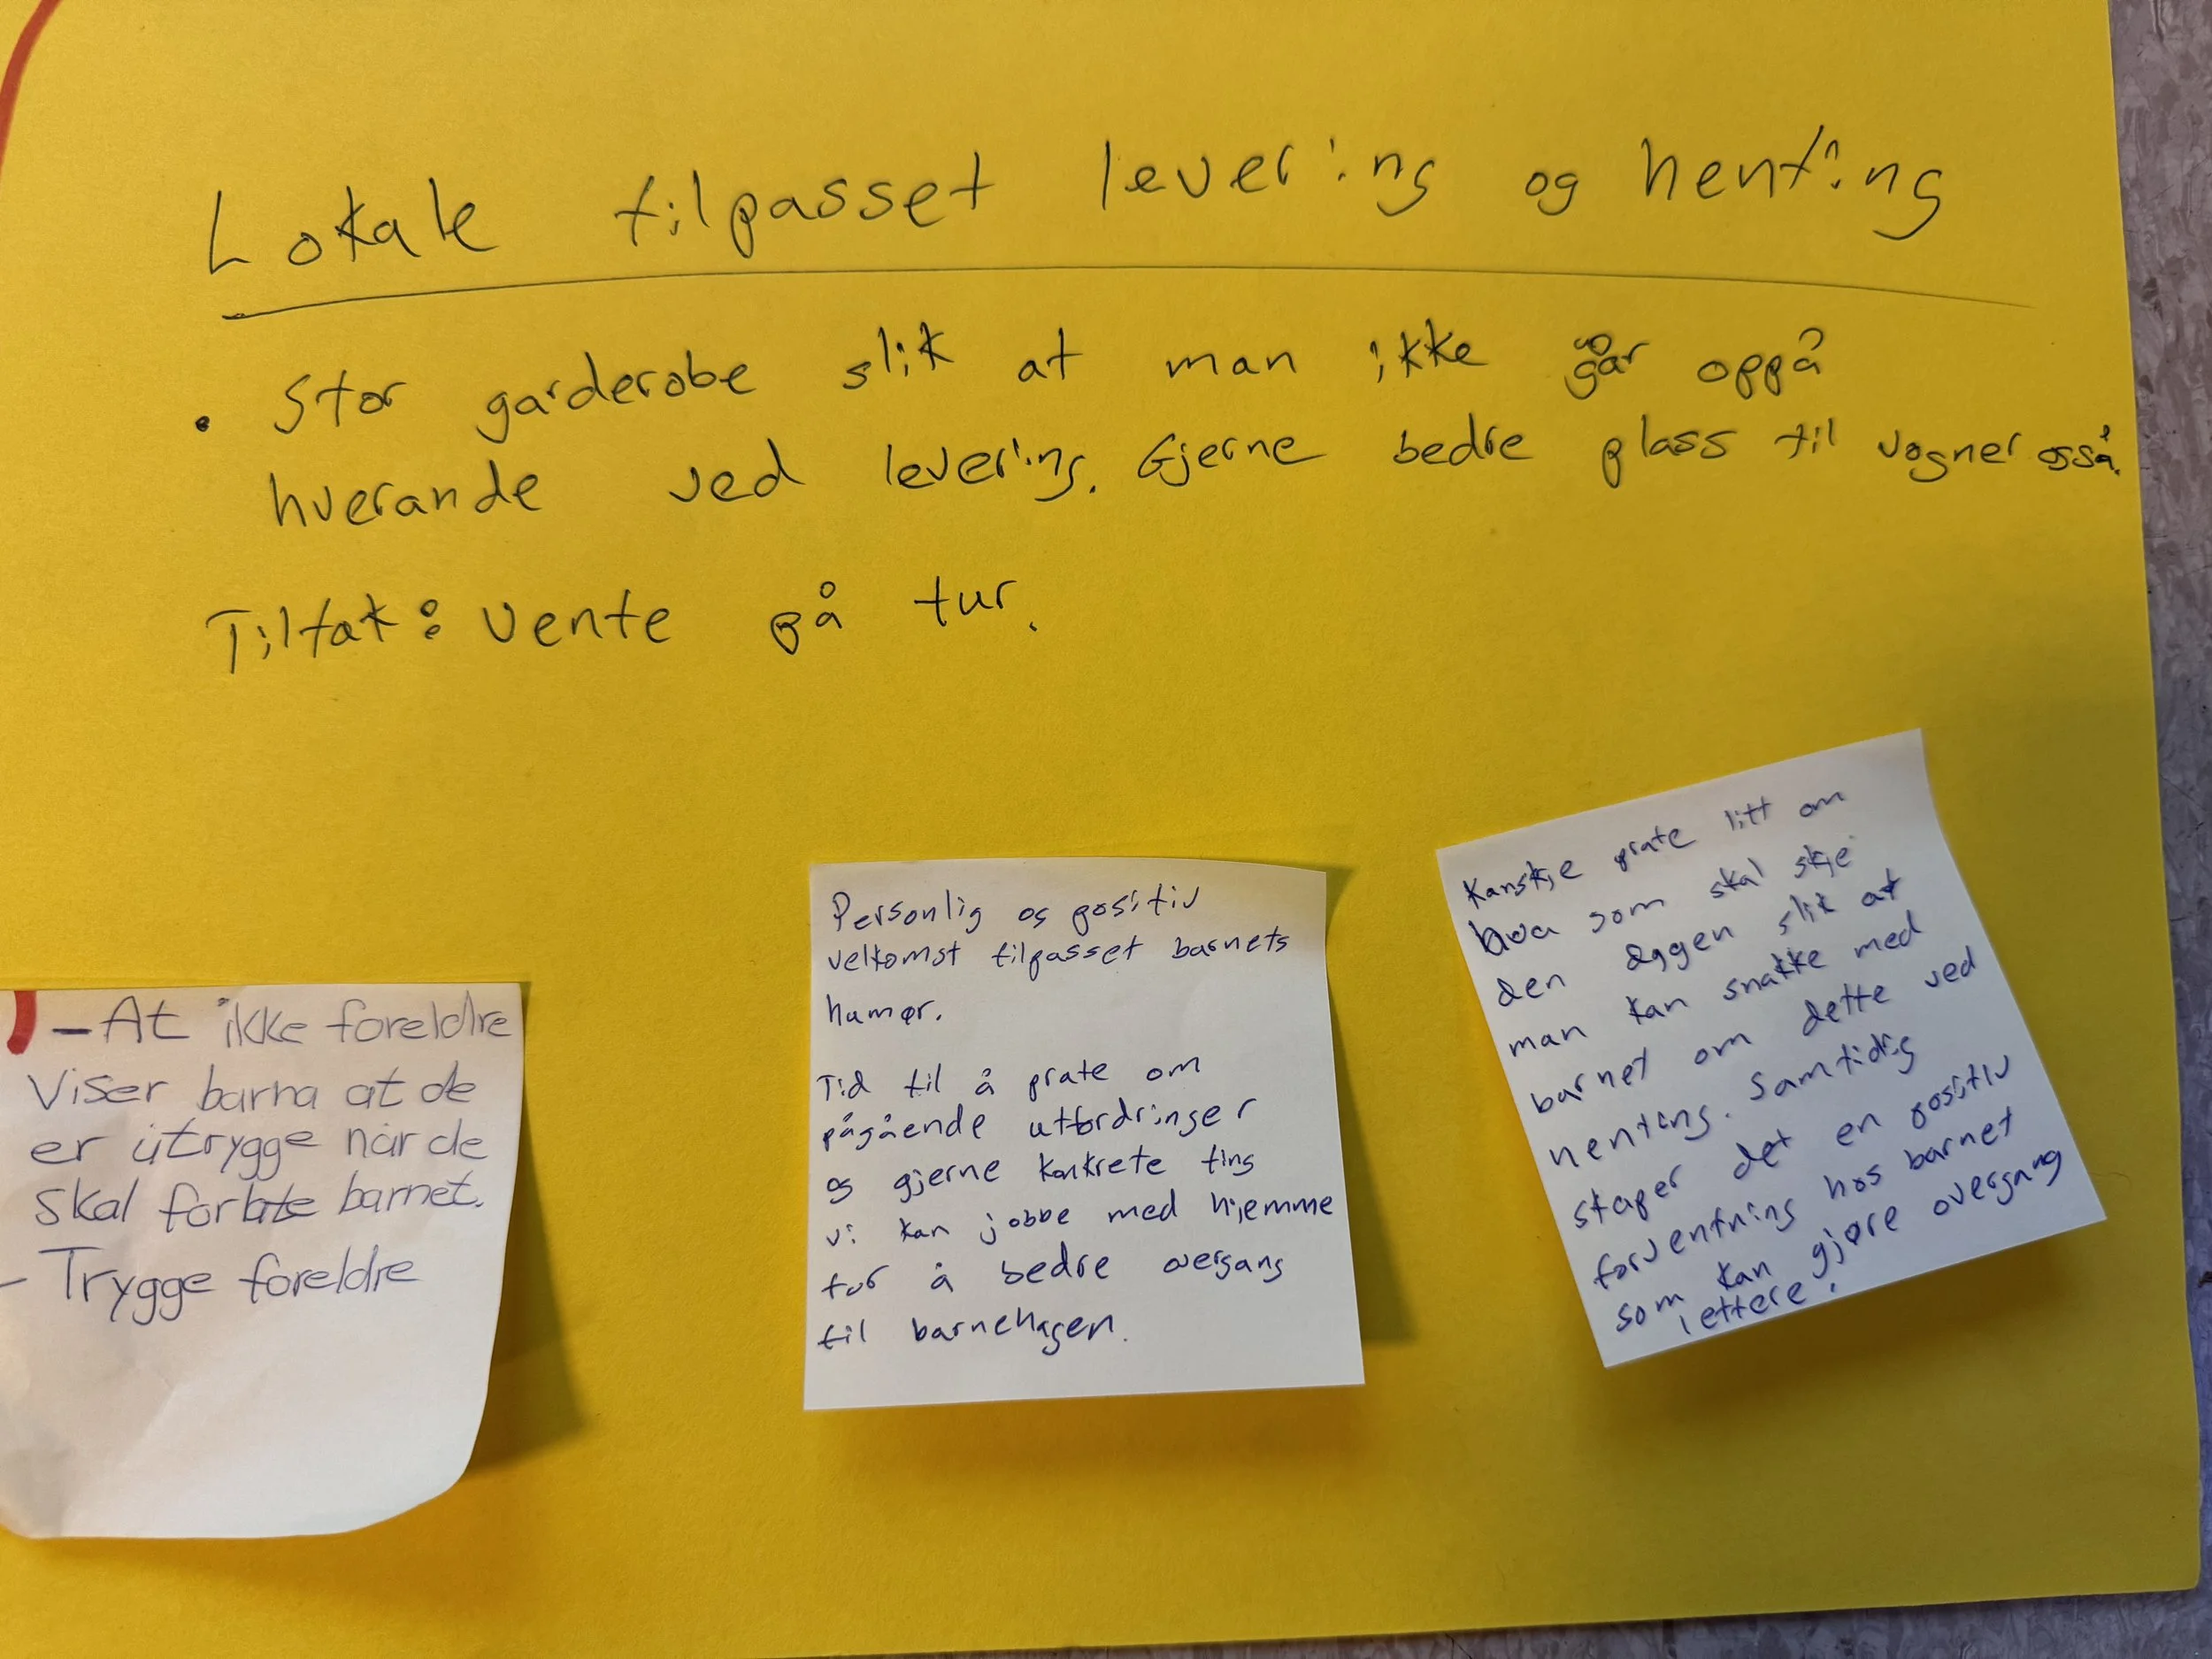 Lokale tilpasset levering og henting
• Stor garderobe slik at man ikke går oppå
hverandre ved levering. Gjerne bedre plass til vogner også.
Tiltak: Vente på tur.
- At ikke foreldre
viser barna at de
er utrygge når de
skal forlate barnet.
- Trygge foreldre
Personlig og positiv
velkomst tilpasset barnets
humør.
Tid til å prate om
pågående utfordringer
og gjerne konkrete ting
vi kan jobbe med hjemme
for å bedre overgang
til barnehagen.
Kanskje prate litt om
hva som skal skje
den dagen slik at
man kan snakke med
barnet om dette ved
henting. Samtidig
skaper det en positiv
forventning hos barnet
som kan gjøre overgang
lettere.